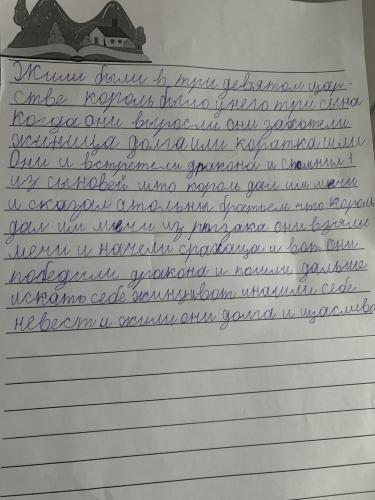 Жили были в три девятом цар-
стве король было у него три сына
Когда они выросли они захотели
жиница долга или коратка шли
Они и встретели дракона и спомнил 1
из сыновей што король дал им мечи
и сказал атольны братьем что король
дал им мечи из рюгзака они взяли
мечи и начели сражаца и вот они
победили дракона и пошли дальше
искать себе жинцивот иначили себе
невест и жили они долга и щасливо